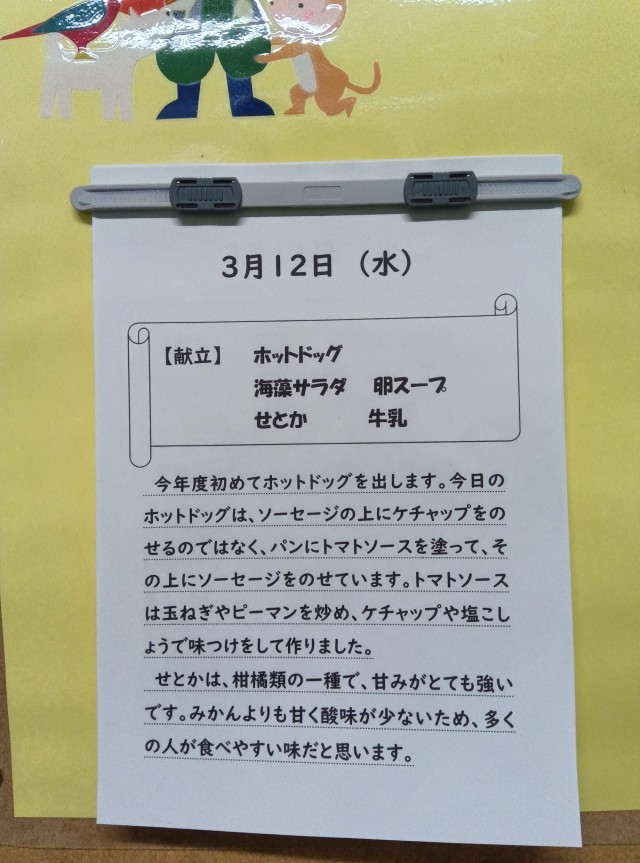 3月12日 （水）
【献立】 ホットドッグ
海藻サラダ 卵スープ
せとか 牛乳
今年度初めてホットドッグを出します。今日の
ホットドッグは、ソーセージの上にケチャップをの
せるのではなく、パンにトマトソースを塗って、そ
の上にソーセージをのせています。トマトソース
は玉ねぎやピーマンを炒め、ケチャップや塩こし
ょうで味つけをして作りました。
せとかは、柑橘類の一種で、甘みがとても強い
です。みかんよりも甘く酸味が少ないため、多く
の人が食べやすい味だと思います。